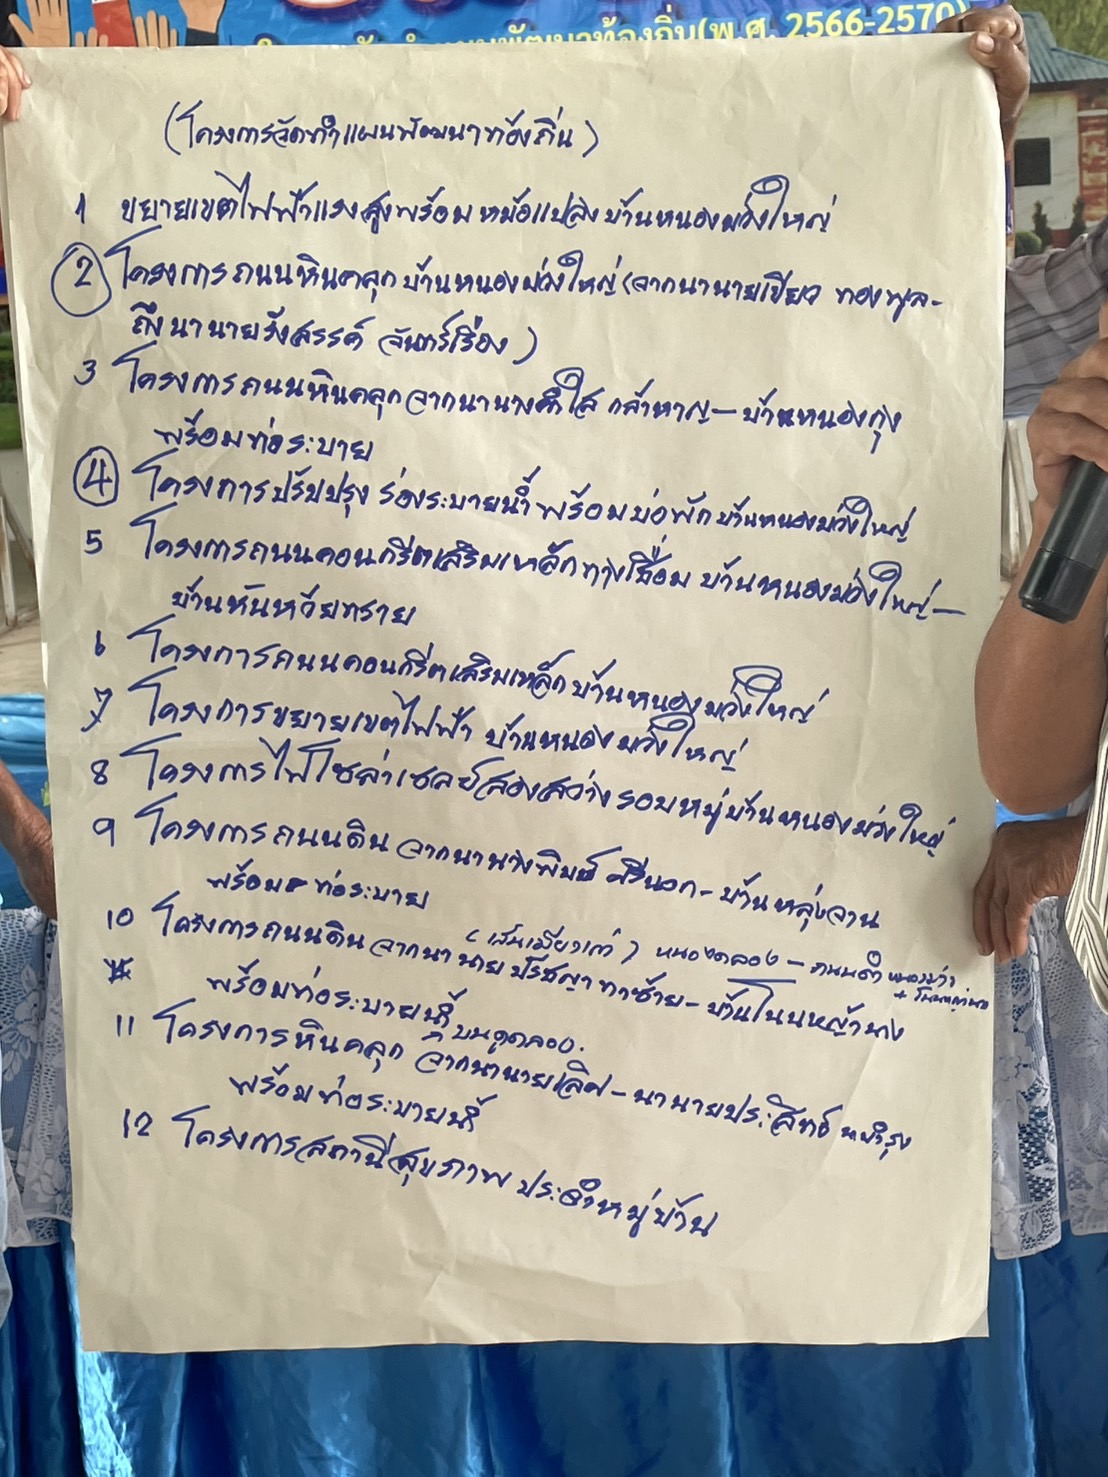 พัฒนาท้องถิ่น(พ.ศ. 2566-2570)
(โครงการจัดทำแผนพัฒนาท้องถิ่น)
1 ขยายเขตไฟฟ้าแรงสูงพร้อมหม้อแปลงบ้านหนองม่วงใหญ่
2 โครงการถนนหินคลุกบ้านหนองม่วงใหญ่ (จากนานายเขียว ทองพูล-
ถึงนานายรังสรรค์ จันทร์เรือง)
3 โครงการถนนหินคลุกจากนานางคำใส กล้าหาญ - บ้านหนองกุง
พร้อมท่อระบาย
4 โครงการปรับปรุง ร่องระบายน้ำพร้อมบ่อพักบ้านหนองม่วงใหญ่
5 โครงการถนนคอนกรีตเสริมเหล็กทางเชื่อม บ้านหนองม่วงใหญ่-
บ้านหันห้วยทราย
6 โครงการถนนคอนกรีตเสริมเหล็กบ้านหนองม่วงใหญ่
7 โครงการขยายเขตไฟฟ้า บ้านหนองม่วงใหญ่
8 โครงการไฟโซล่าเซลย์ส่องสว่างรอบหมู่บ้านหนองม่วงใหญ่
9 โครงการถนนดิน จากนานางพิมพ์ ศรีนอก - บ้านหลุ่งจาน
พร้อมท่อระบาย
(เส้นเมียงเก่า) หนองคลอง - ถนนดำ
10 โครงการถนนดิน จากนานาย ปรัชญา ทาซ้าย - บ้านโนนหญ้านาง
พร้อมท่อระบายน้ำ
11 โครงการหินคลุก จากนานายเลิศ - นานายประสิทธิ์ หมำรุง
พร้อมท่อระบายน้ำ
12 โครงการสถานีสุขภาพ ประจำหมู่บ้าน